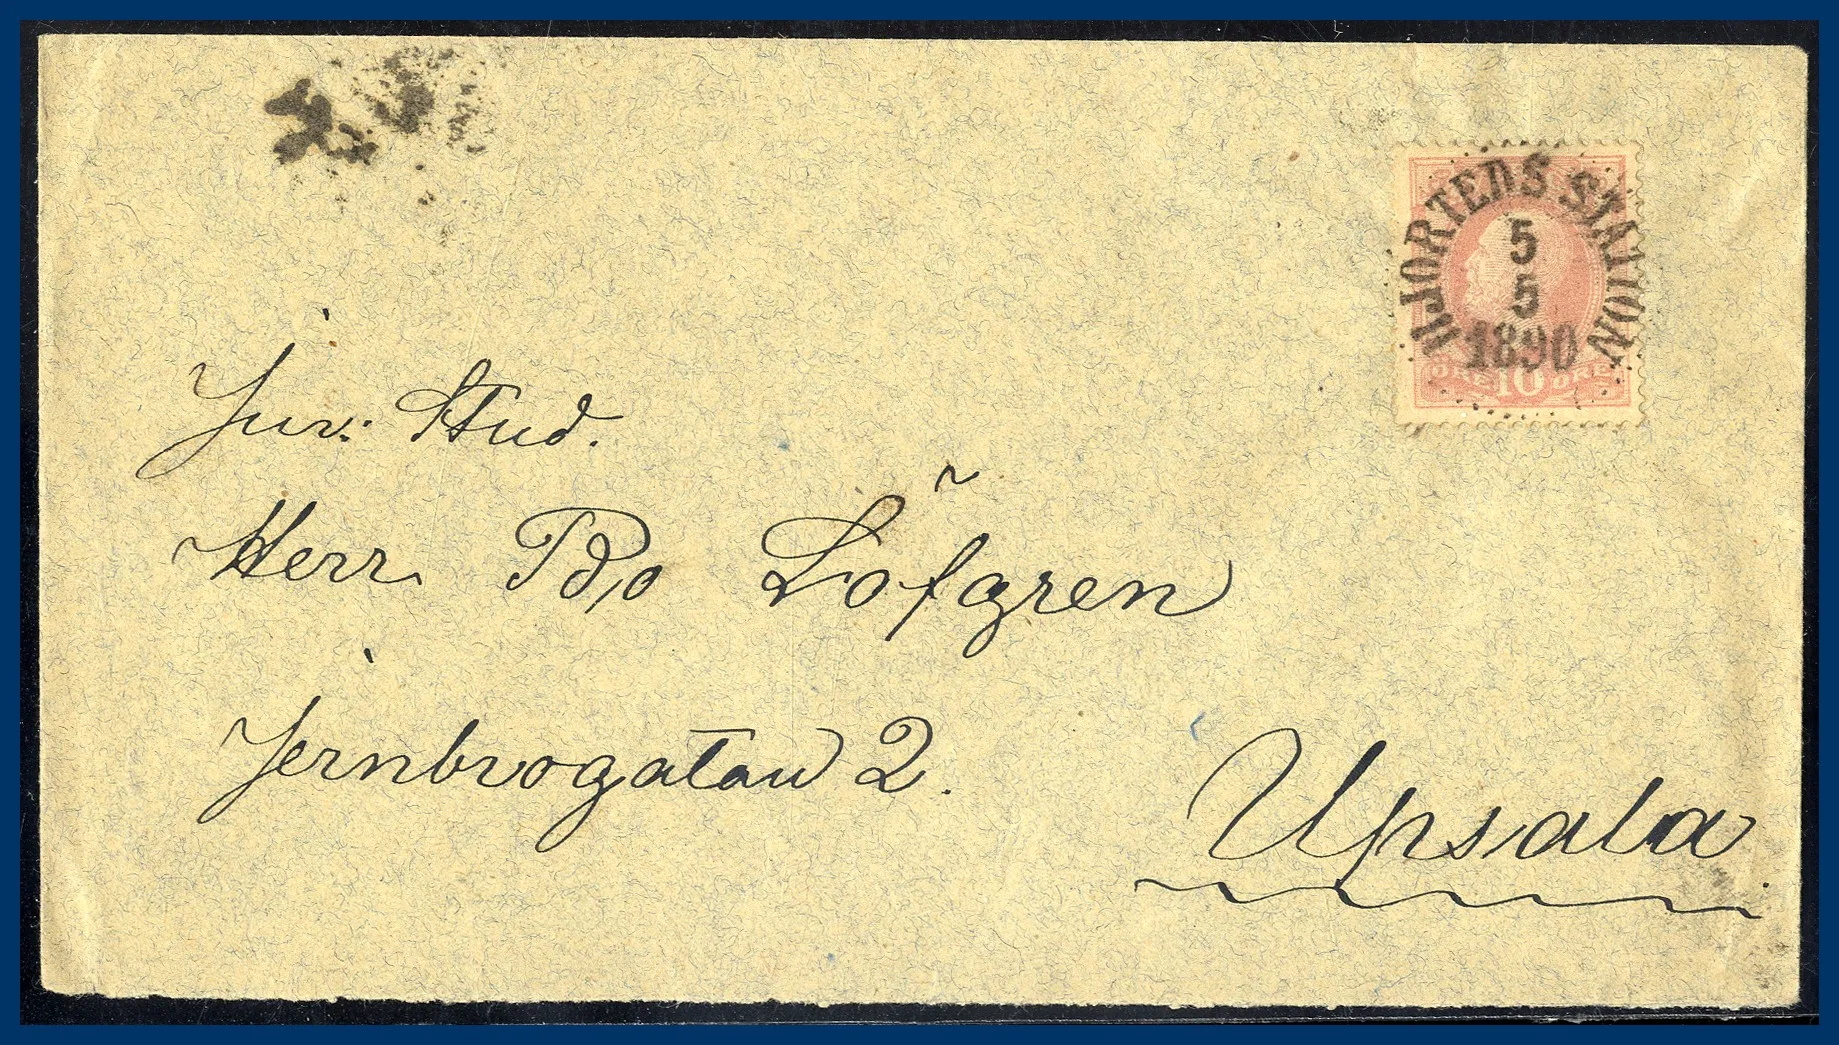 HJORTENS STATION
5
5
1890
ÖRE 10 ÖRE
Jur: Stud.
Herr Bo Löfgren
Jernbrogatan 2.
Upsala